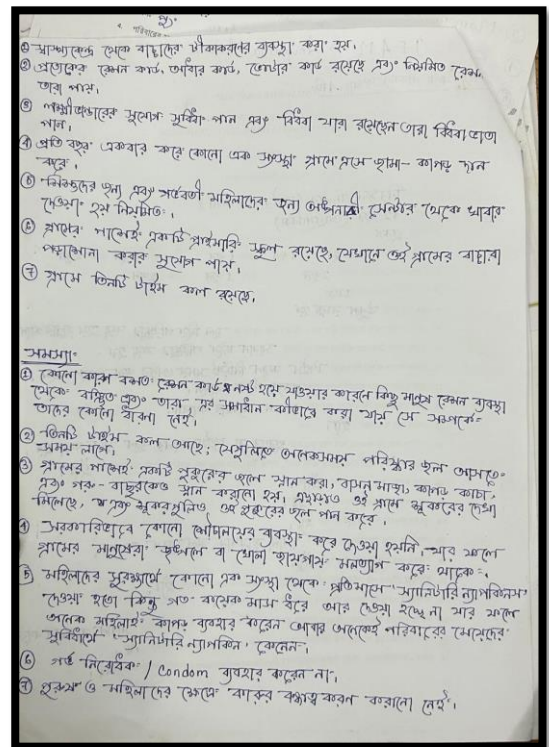 ① স্বাস্থ্যকেন্দ্র থেকে বাচ্চাদের টীকাকরণের ব্যবস্থা করা হয়।
② প্রত্যেকের রেশন কার্ড, আধার কার্ড, ভোটার কার্ড রয়েছে এবং নিয়মিত রেশন
তারা পায়।
③ লক্ষ্মীভান্ডারের সুযোগ সুবিধা পান এবং বিধবা যারা রয়েছেন তারা বিধবা ভাতা
পান।
④ প্রতি বছর একবার করে কোনো এক সংস্থা গ্রামে এসে জামা-কাপড় দান
করে।
⑤ শিশুদের জন্য এবং গর্ভবতী মহিলাদের জন্য অঙ্গনওয়াড়ী সেন্টার থেকে খাবার
দেওয়া হয় নিয়মিত।
⑥ গ্রামের পাশেই একটি প্রাইমারি স্কুল রয়েছে, যেখানে ওই গ্রামের বাচ্চারা
পড়াশোনা করার সুযোগ পায়।
⑦ গ্রামে তিনটি টাইম কল রয়েছে।
সমস্যা:
① কোনো কারণ বশত রেশন কার্ড নষ্ট হয়ে যাওয়ার কারণে কিছু মানুষ রেশন ব্যবস্থা
থেকে বঞ্চিত এবং তারা এর সমাধান কীভাবে করা যায় সে সম্পর্কে
তাদের কোনো ধারনা নেই।
② তিনটি টাইম কল আছে; সেগুলিতে অনেকসময় পরিস্কার জল আসতে
সময় লাগে।
③ গ্রামের পাশেই একটি পুকুরের জলে স্নান করা, বাসন মাজা, কাপড় কাচা,
এবং গরু-বাছুরকেও স্নান করানো হয়, এছাড়াও ওই গ্রামে শূকরের দেখা
মিলেছে, এবং শূকরগুলিও ওই পুকুরের জল পান করে।
④ সরকারিভাবে কোনো শৌচালয়ের ব্যবস্থা করে দেওয়া হয়নি, যার ফলে
গ্রামের মানুষেরা জঙ্গলে বা খোলা জায়গায় মলত্যাগ করে থাকে।
⑤ মহিলাদের সুরক্ষার্থে কোনো এক সংস্থা থেকে প্রতিমাসে 'স্যানিটারি ন্যাপকিনস'
দেওয়া হতো কিন্তু গত কয়েক মাস ধরে আর দেওয়া হচ্ছে না যার ফলে
অনেক মহিলাই কাপড় ব্যবহার করেন আবার অনেকেই পরিবারের মেয়েদের
সুবিধার্থে 'স্যানিটারি ন্যাপকিন' কেনেন।
⑥ গর্ভ নিরোধক / Condom ব্যবহার করেন না।
⑦ পুরুষ ও মহিলাদের ক্ষেত্রে কারুর বন্ধ্যাত্ব করণ করানো নেই।